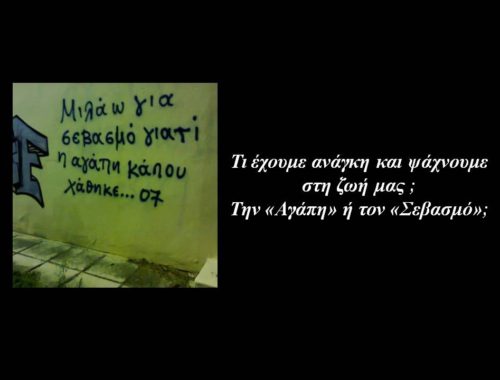 Μιλάω για
σεβασμό γιατί
η αγάπη κάπου
χάθηκε... 07
Τι έχουμε ανάγκη και ψάχνουμε
στη ζωή μας ;
Την «Αγάπη» ή τον «Σεβασμό»;